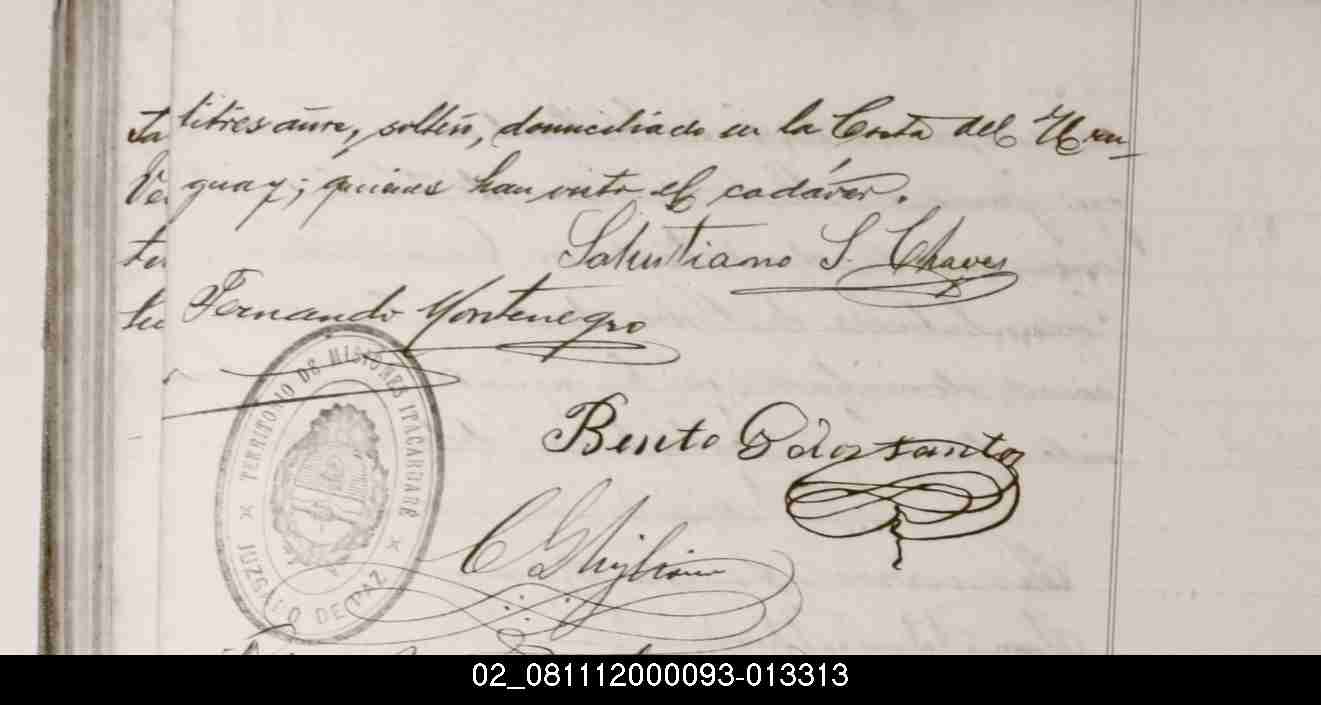 titres años, soltero, domiciliado en la Costa del Uru-
guay; quienes han visto el cadáver.
Salustiano S. Chaves
Fernando Montenegro
TERRITORIO DE MISIONES ITACARUARÉ
JUZGADO DE PAZ
Bento G dos santos
02_081112000093-013313